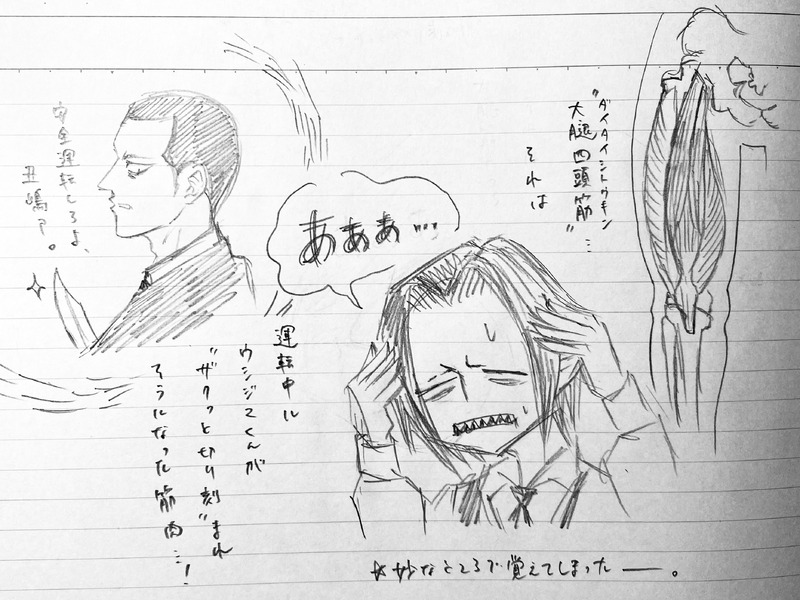 ダイタイシトウキン
“大腿四頭筋”…
それは
あぁぁ…
安全運転しろよ、
丑嶋ァ。
運転中に
ウシジマくんが
“ザクっと切り刻”まれ
そうになった筋肉…！
☆妙なところで覚えてしまった——。